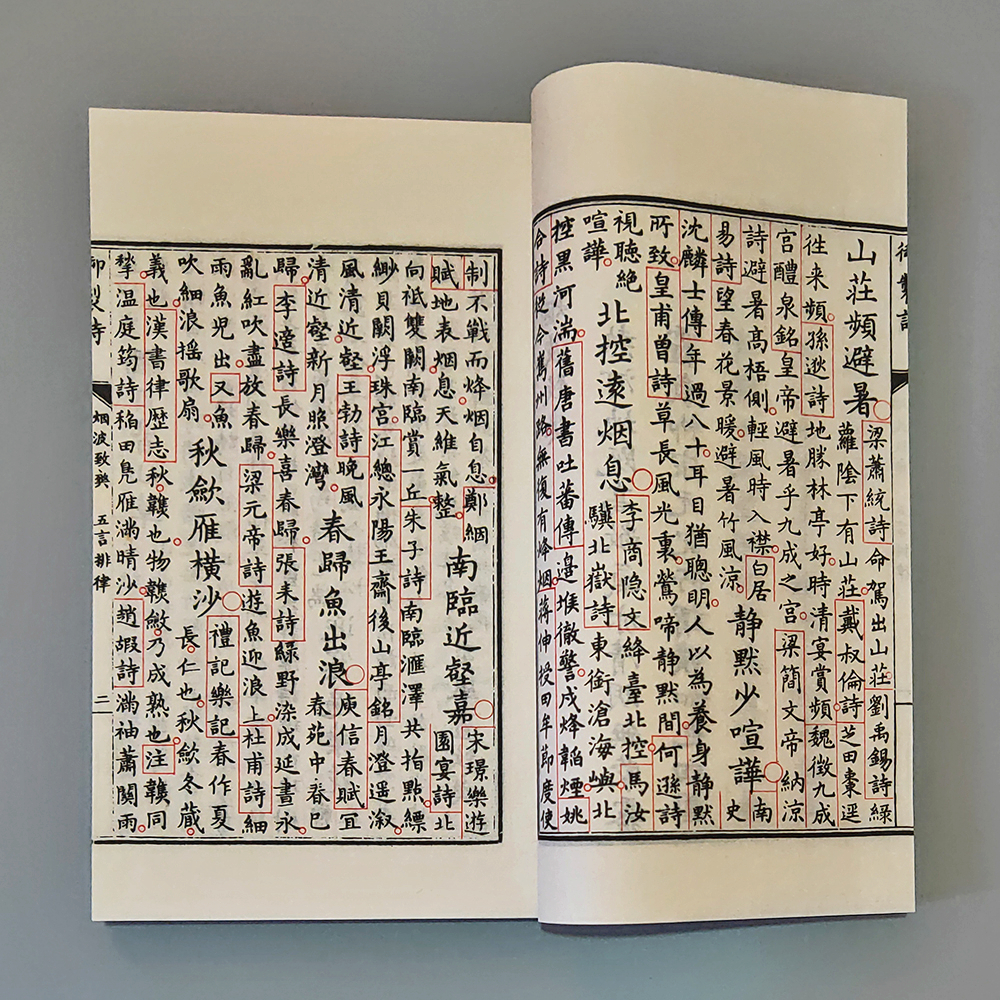 山莊頻避暑
梁蕭統詩命駕出山莊劉禹錫詩綠
蘿陰下有山莊戴叔倫詩芝田棗逕
往来頻孫逖詩地勝林亭好時清宴賞頻魏徵九成
宮醴泉銘皇帝避暑乎九成之宮梁簡文帝納涼
詩避暑高梧側輕風時入襟白居
易詩望春花景暖避暑竹風涼
静默少喧譁
南
史
沈麟士傳年過八十耳目猶聰明人以為養身静默
所致皇甫曾詩草長風光裏鶯啼静默間何遜詩
視聽絕
喧譁
北控遠烟息
李商隐文絳臺北控馬汝
驥北嶽詩東銜滄海嶼北
控黑河湍舊唐書吐蕃傳邉堠徹警戍烽韜煙姚
合詩從今巂州路無復有烽烟蔣伸授田牟節度使
制不戰而烽烟自息鄭絪
賦地表烟息天維氣整
南臨近壑嘉
宋璟樂遊
園宴詩北
向祗雙闕南臨賞一丘朱子詩南臨滙澤共指點縹
緲貝闕浮珠宮江總永陽王齋後山亭銘月澄遥溆
風清近壑王勃詩晚風
清近壑新月照澄灣
春歸魚出浪
庾信春賦冝
春苑中春已
歸李遠詩長樂喜春歸張耒詩綠野染成延晝永
亂紅吹盡放春歸梁元帝詩遊魚迎浪上杜甫詩細
雨魚兒出又魚
吹細浪摇歌扇
秋歛雁横沙
禮記樂記春作夏
長仁也秋歛冬藏
義也漢書律歷志秋䪜也物䪜斂乃成熟也注䪜同
揫温庭筠詩稻田凫雁滿晴沙趙嘏詩滿袖蕭闗雨
御製詩
烟波致爽
五言排律
二